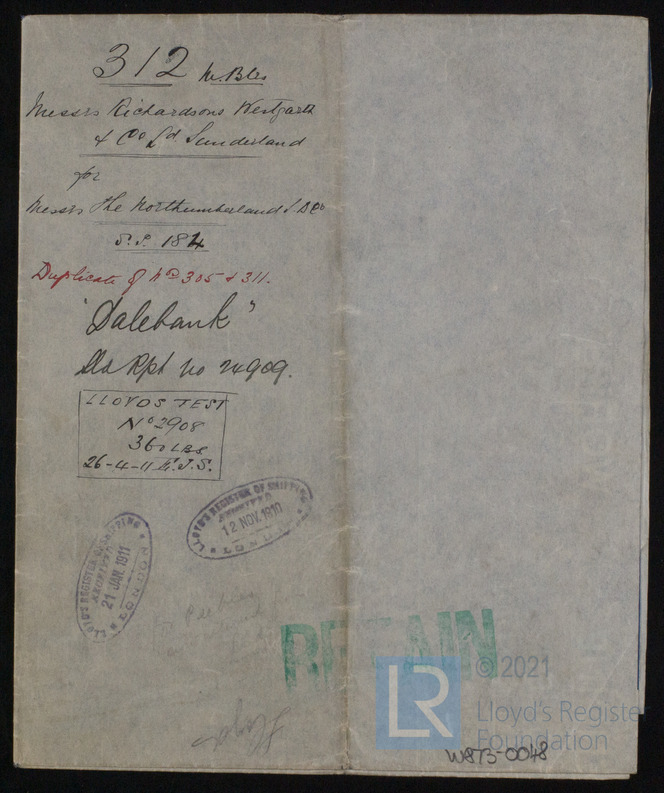 312 Mr Bles
Messrs Richardsons Westgarth
& Co Ld Sunderland
for
Messrs The Northumberland S. B Co
S.S. 184
Duplicate of No 305 & 311.
"Dalebank"
Sld Rpt no 24909.
LLOYDS TEST
No 2908
360 LBS
26-4-11 E.J.S.
LLOYD'S REGISTER OF SHIPPING
12 NOV. 1910
LONDON
LLOYD'S REGISTER OF SHIPPING
21 JAN. 1911
LONDON
RETAIN
© 2021
LR
Lloyd's Register
Foundation
W873-0048